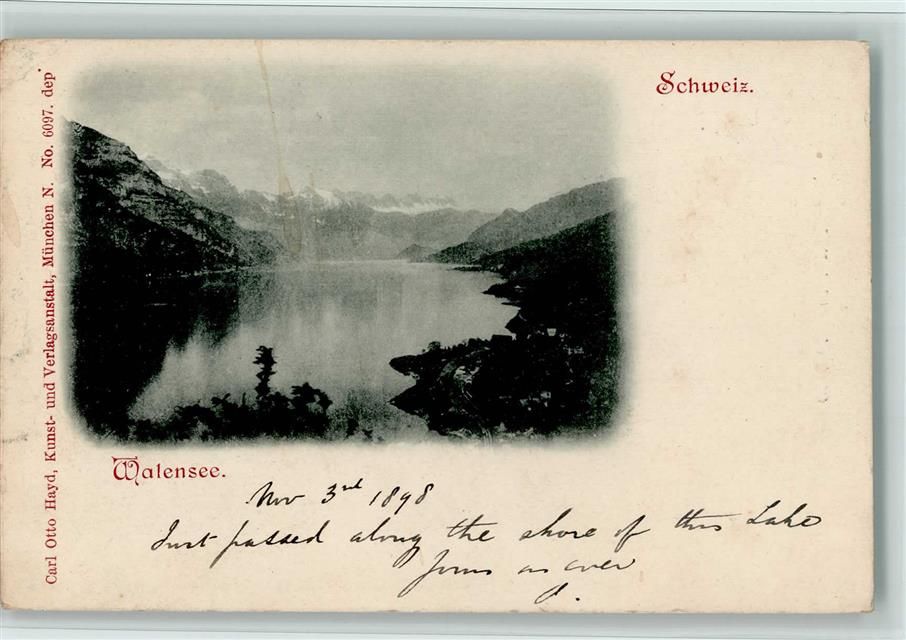 Schweiz.
Carl Otto Hayd, Kunst- und Verlagsanstalt, München N. No. 6097. dep
Walensee.
Nov 3rd 1898
Just passed along the shore of this Lake
Yours as ever